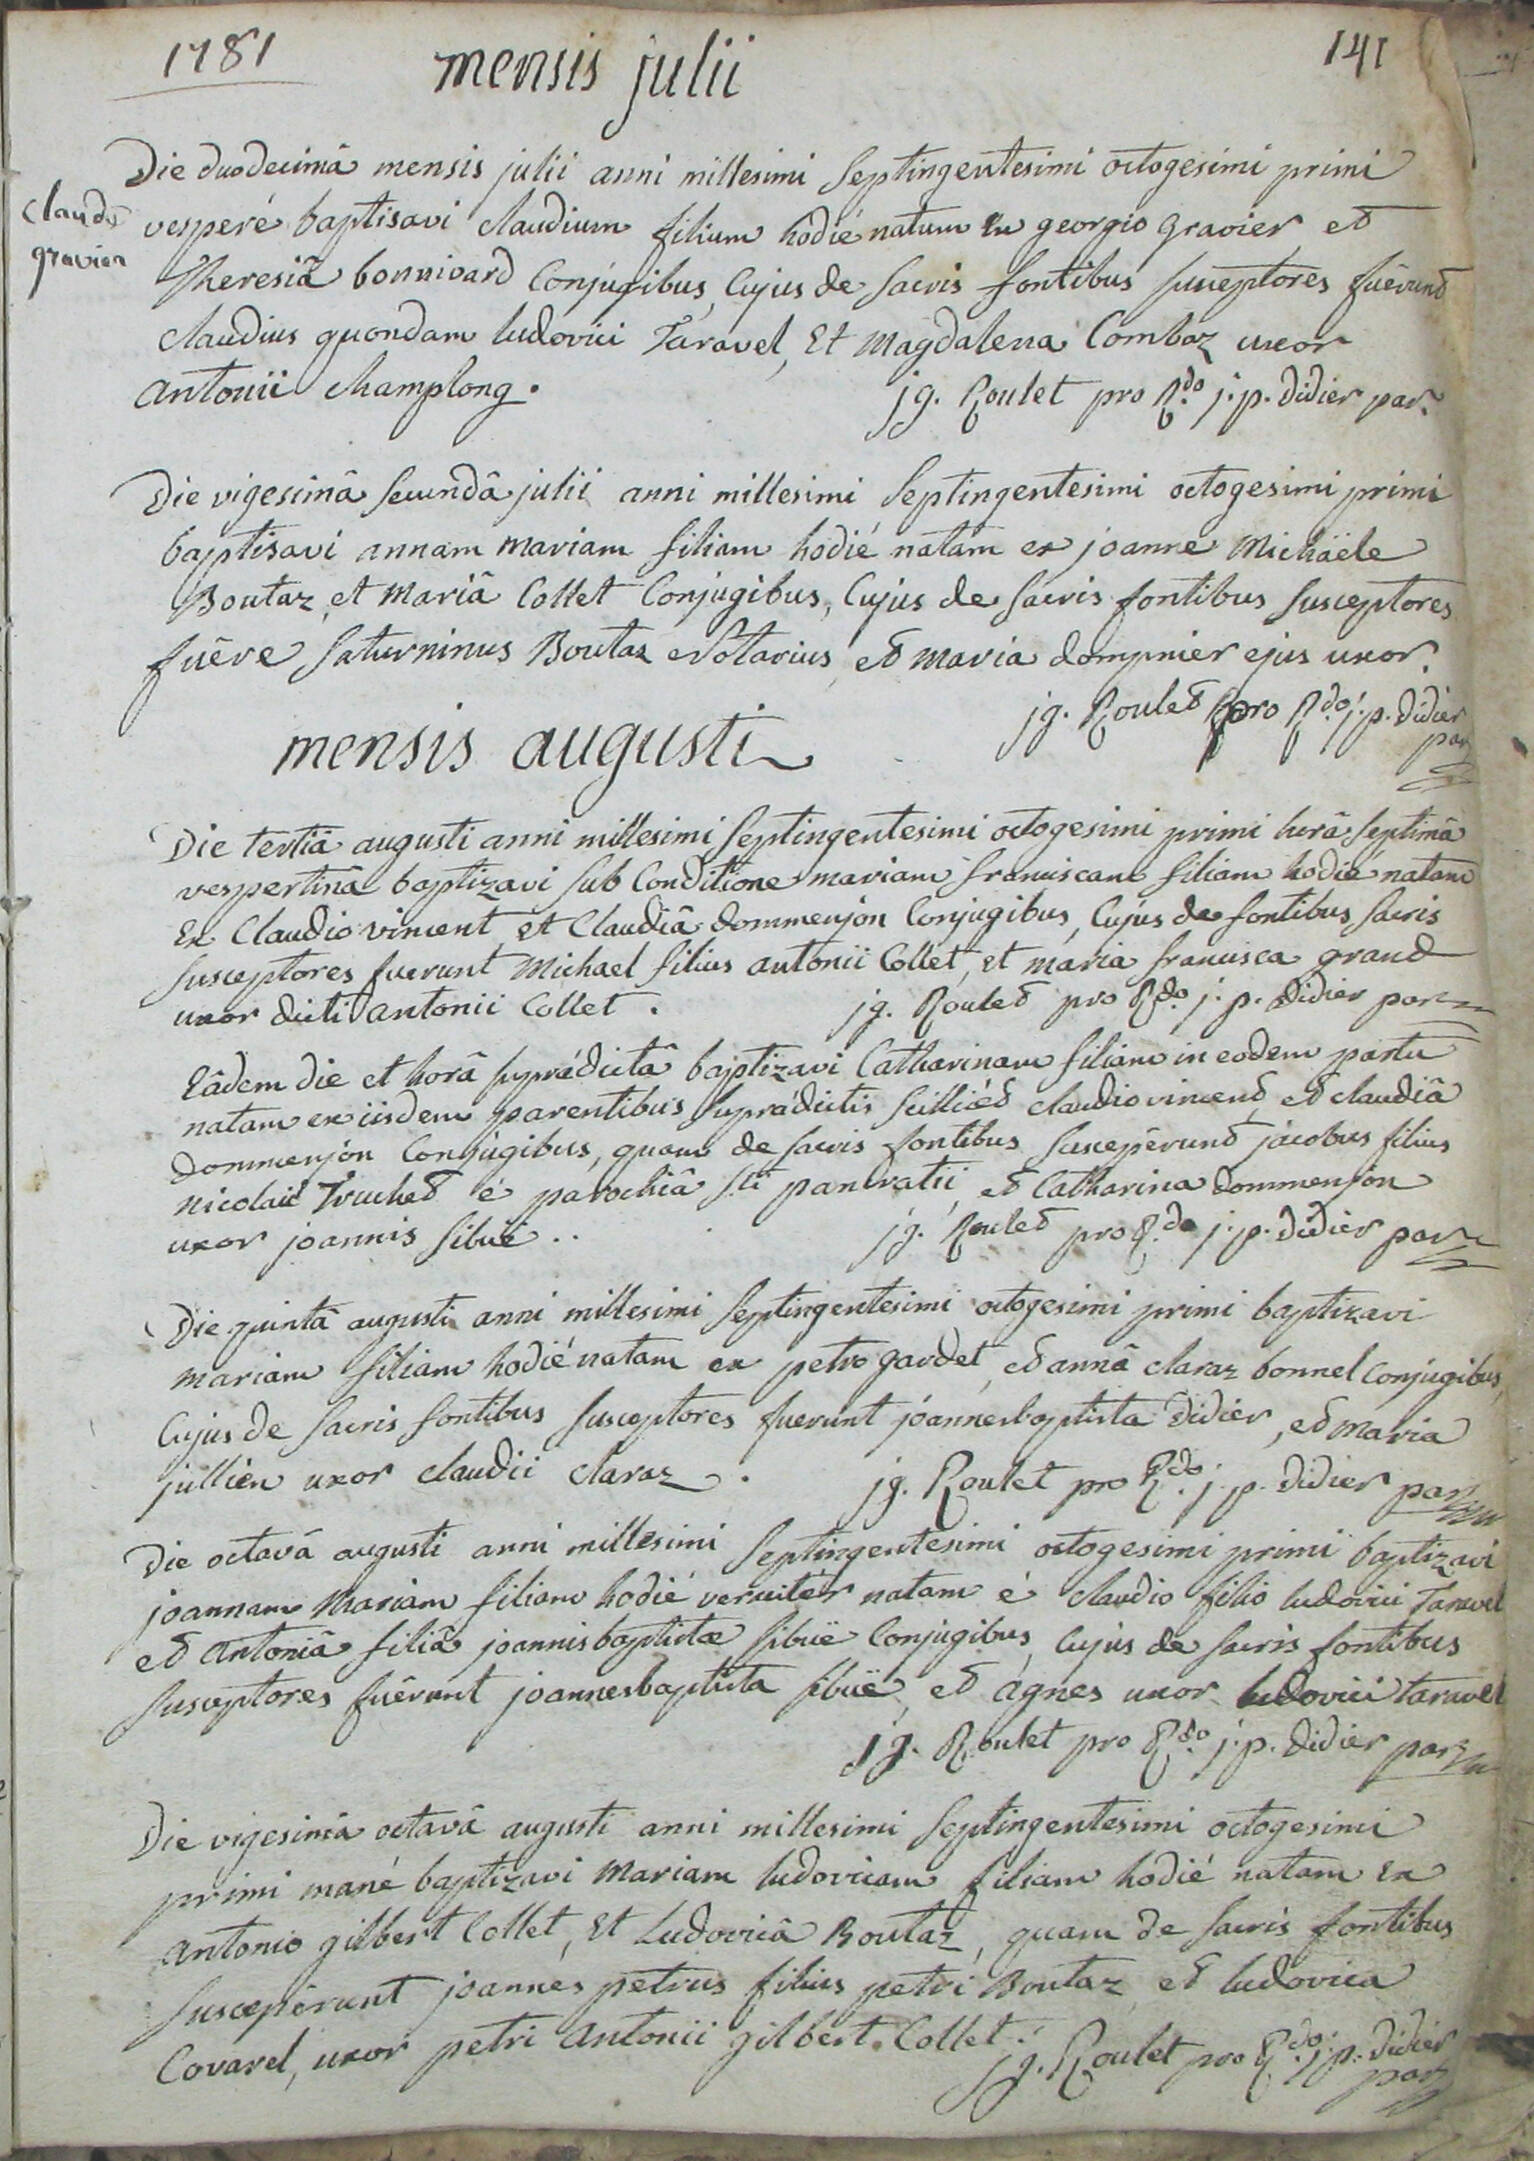 1781
mensis julii
141
Die duodecimâ mensis julii anni millesimi Septingentesimi octogesimi primi
claude
gravier
vesperé baptisavi claudium filium hodié natum Ex georgio gravier et
Theresiâ bonnivard Conjugibus, Cujus de Sacris fontibus susceptores fuêrunt
Claudius quondam ludovici Taravel, Et Magdalena Comboz uxor
Antonii champlong.
jg. Roulet pro Rdo j. p. didier par.
Die vigesimâ Secundâ julii anni millesimi Septingentesimi octogesimi primi
baptisavi annam mariam filiam hodié natam ex joanne Michäele
Boutaz, et Mariâ Collet Conjugibus, Cujus de Sacris fontibus Susceptores
fuêre Saturninus Boutaz Notarius, et maria dompnier ejus uxor.
jg. Roulet pro Rdo j. p. didier
par
mensis augusti
Die tertiâ augusti anni millesimi Septingentesimi octogesimi primi horâ Septimâ
vespertinâ baptizavi sub Conditione mariam franciscam filiam hodié natam
Ex Claudio vincent, et Claudiâ dommenjon Conjugibus, Cujus de fontibus Sacris
Susceptores fuerunt Michael filius antonii Collet, et maria francisca grand
uxor dicti antonii Collet.
jg. Roulet pro Rdo j. p. didier par
Eâdem die et horâ suprádictâ baptizavi Catharinam filiam in eodem partu
natam ex iisdem parentibus suprádictis Scilicét claudio vincent, et claudiâ
dommenjon Conjugibus, quam de Sacris fontibus Suscepêrunt jacobus filius
nicolai Truchet é parochiâ Sti pancratii, et Catharina dommenjon
uxor joannis Sibué..
jg. Roulet pro Rdo j. p. didier par
Die quintâ augusti anni millesimi Septingentesimi octogesimi primi baptizavi
mariam filiam hodié natam ex petro gardet, et annâ claraz bonnel Conjugibus,
Cujus de Sacris fontibus Susceptores fuerunt joannesbaptista Didier, et maria
jullien uxor claudii claraz.
jg. Roulet pro Rdo j. p. didier par
Die octavâ augusti anni millesimi Septingentesimi octogesimi primi baptizavi
joannam Mariam filiam hodié natam é claudio filio ludovici Taravel
et Antoniâ filiâ joannisbaptistæ Sibuë Conjugibus, Cujus de Sacris fontibus
Susceptores fuêrunt joannesbaptista Sibuë, et Agnes uxor ludovici taravel
jg. Roulet pro Rdo j. p. didier par
Die vigesimâ octavâ augusti anni millesimi Septingentesimi octogesimi
primi mané baptizavi Mariam ludovicam filiam hodié natam Ex
Antonio gilbert Collet, Et Ludovicâ Boutaz, quam de Sacris fontibus
Suscepêrunt joannes petrus filius petri Boutaz et ludovica
Covarel, uxor petri Antonii gilbert Collet.
jg. Roulet pro Rdo j. p. didier
par